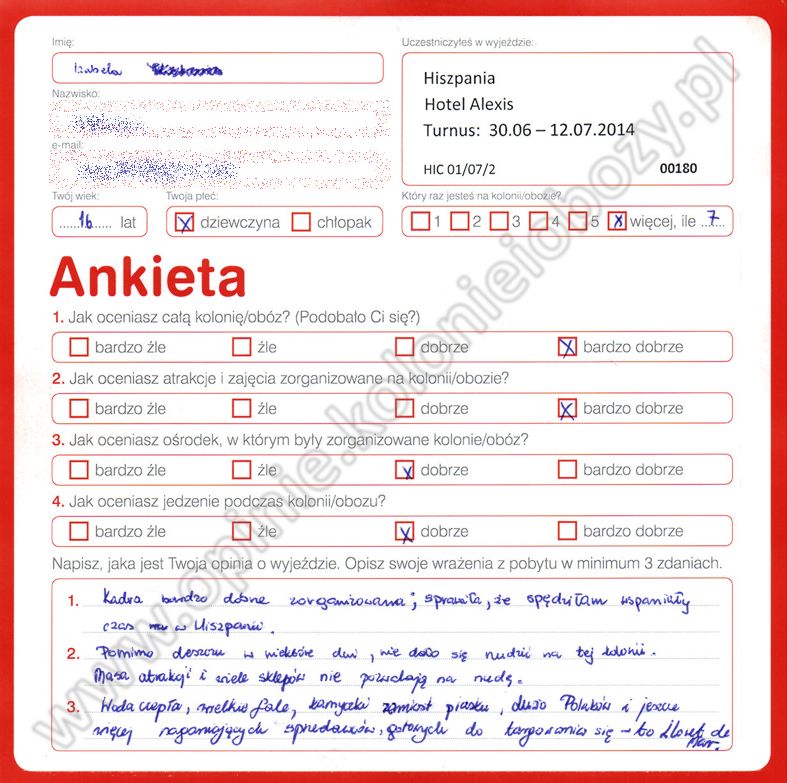 Imię:
Izabela
Uczestniczyłeś w wyjeździe:
Hiszpania
Hotel Alexis
Turnus: 30.06 – 12.07.2014
HIC 01/07/2 00180
Nazwisko:
e-mail:
Twój wiek:
16 lat
Twoja płeć:
x dziewczyna chłopak
Który raz jesteś na kolonii/obozie?
1 2 3 4 5 x więcej, ile 7
Ankieta
1. Jak oceniasz całą kolonię/obóz? (Podobało Ci się?)
bardzo źle źle dobrze x bardzo dobrze
2. Jak oceniasz atrakcje i zajęcia zorganizowane na kolonii/obozie?
bardzo źle źle dobrze x bardzo dobrze
3. Jak oceniasz ośrodek, w którym były zorganizowane kolonie/obóz?
bardzo źle źle x dobrze bardzo dobrze
4. Jak oceniasz jedzenie podczas kolonii/obozu?
bardzo źle źle x dobrze bardzo dobrze
Napisz, jaka jest Twoja opinia o wyjeździe. Opisz swoje wrażenia z pobytu w minimum 3 zdaniach.
1. Kadra bardzo dobrze zorganizowana; sprawiła, że spędziłam wspaniały
czas w Hiszpanii.
2. Pomimo deszczu w niektóre dni, nie dało się nudzić na tej kolonii.
Masa atrakcji i wiele sklepów nie pozwalają na nudę.
3. Woda ciepła, wielkie fale, kamyczki zamiast piasku, dużo Polaków i jeszcze
więcej naganiających sprzedawców, gotowych do targowania się – to Lloret de
Mar.
www.opinie.kolonieiobozy.pl